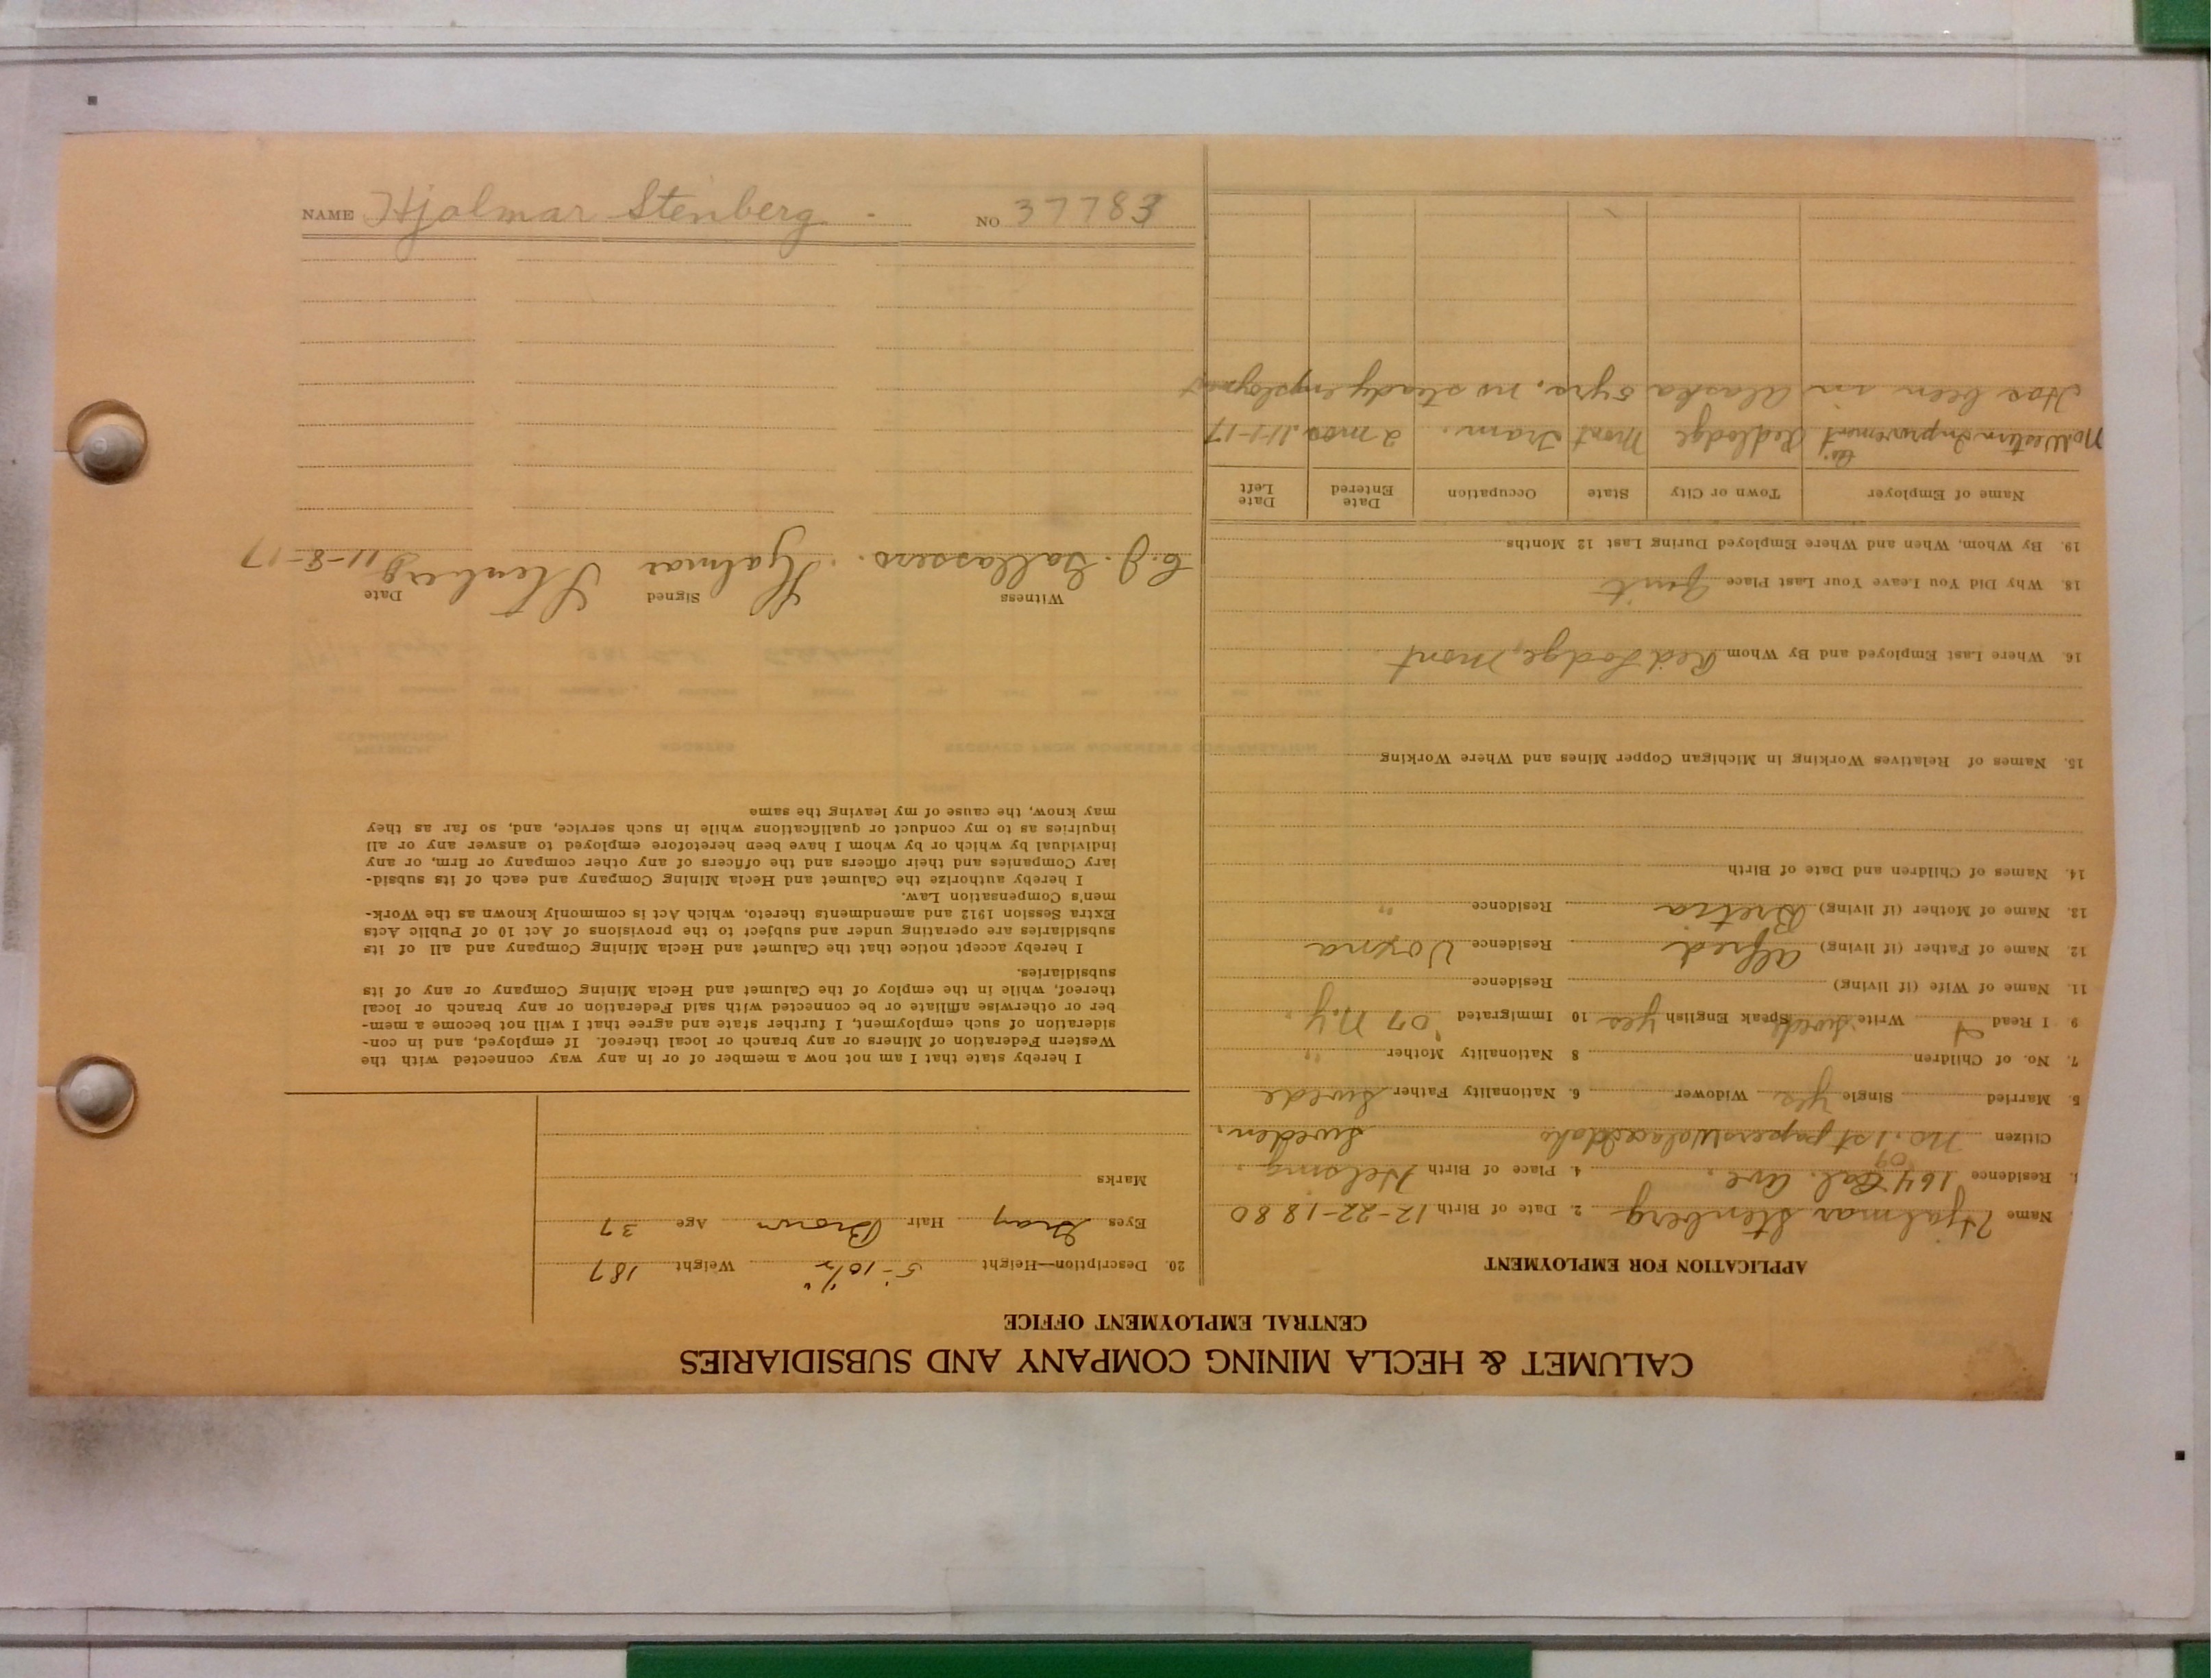 CALUMET & HECLA MINING COMPANY AND SUBSIDIARIES
CENTRAL EMPLOYMENT OFFICE
APPLICATION FOR EMPLOYMENT
Name Hjalmar Stenberg 2. Date of Birth 12-22-1880
Residence 164 Cal. Ave. 4. Place of Birth Helsing,
Citizen No. 1st papers Wallace Idaho '09 Sweden.
5. Married Single yes Widower 6. Nationality Father Swede
7. No. of Children 8 Nationality Mother "
9 I Read I Write Swede Speak English yes 10 Immigrated '07 N.Y.
11. Name of Wife (if living) Residence
12. Name of Father (if living) Alfred Residence Voxna
13. Name of Mother (if living) Bretia Residence "
14. Names of Children and Date of Birth
15. Names of Relatives Working in Michigan Copper Mines and Where Working
16. Where Last Employed and By Whom Red Lodge, Mont
18. Why Did You Leave Your Last Place Quit
19. By Whom, When and Where Employed During Last 12 Months
Name of Employer Town or City State Occupation Date Entered Date Left
No.Western Improvement Co. Redlodge Mont Tram. 2 mos. 11-1-17
Has been in Alaska 5 yrs. no steady employment
20. Description—Height 5'-10½" Weight 187
Eyes Gray Hair Brown Age 37
Marks
I hereby state that I am not now a member of or in any way connected with the
Western Federation of Miners or any branch or local thereof. If employed, and in con-
sideration of such employment, I further state and agree that I will not become a mem-
ber or otherwise affiliate or be connected with said Federation or any branch or local
thereof, while in the employ of the Calumet and Hecla Mining Company or any of its
subsidiaries.
I hereby accept notice that the Calumet and Hecla Mining Company and all of its
subsidiaries are operating under and subject to the provisions of Act 10 of Public Acts
Extra Session 1912 and amendments thereto, which Act is commonly known as the Work-
men's Compensation Law.
I hereby authorize the Calumet and Hecla Mining Company and each of its subsid-
iary Companies and their officers and the officers of any other company or firm, or any
individual by which or by whom I have been heretofore employed to answer any or all
inquiries as to my conduct or qualifications while in such service, and, so far as they
may know, the cause of my leaving the same
Witness Signed Date
C.J. Hjalmar Stenberg 11-8-17
NAME Hjalmar Stenberg NO 37783